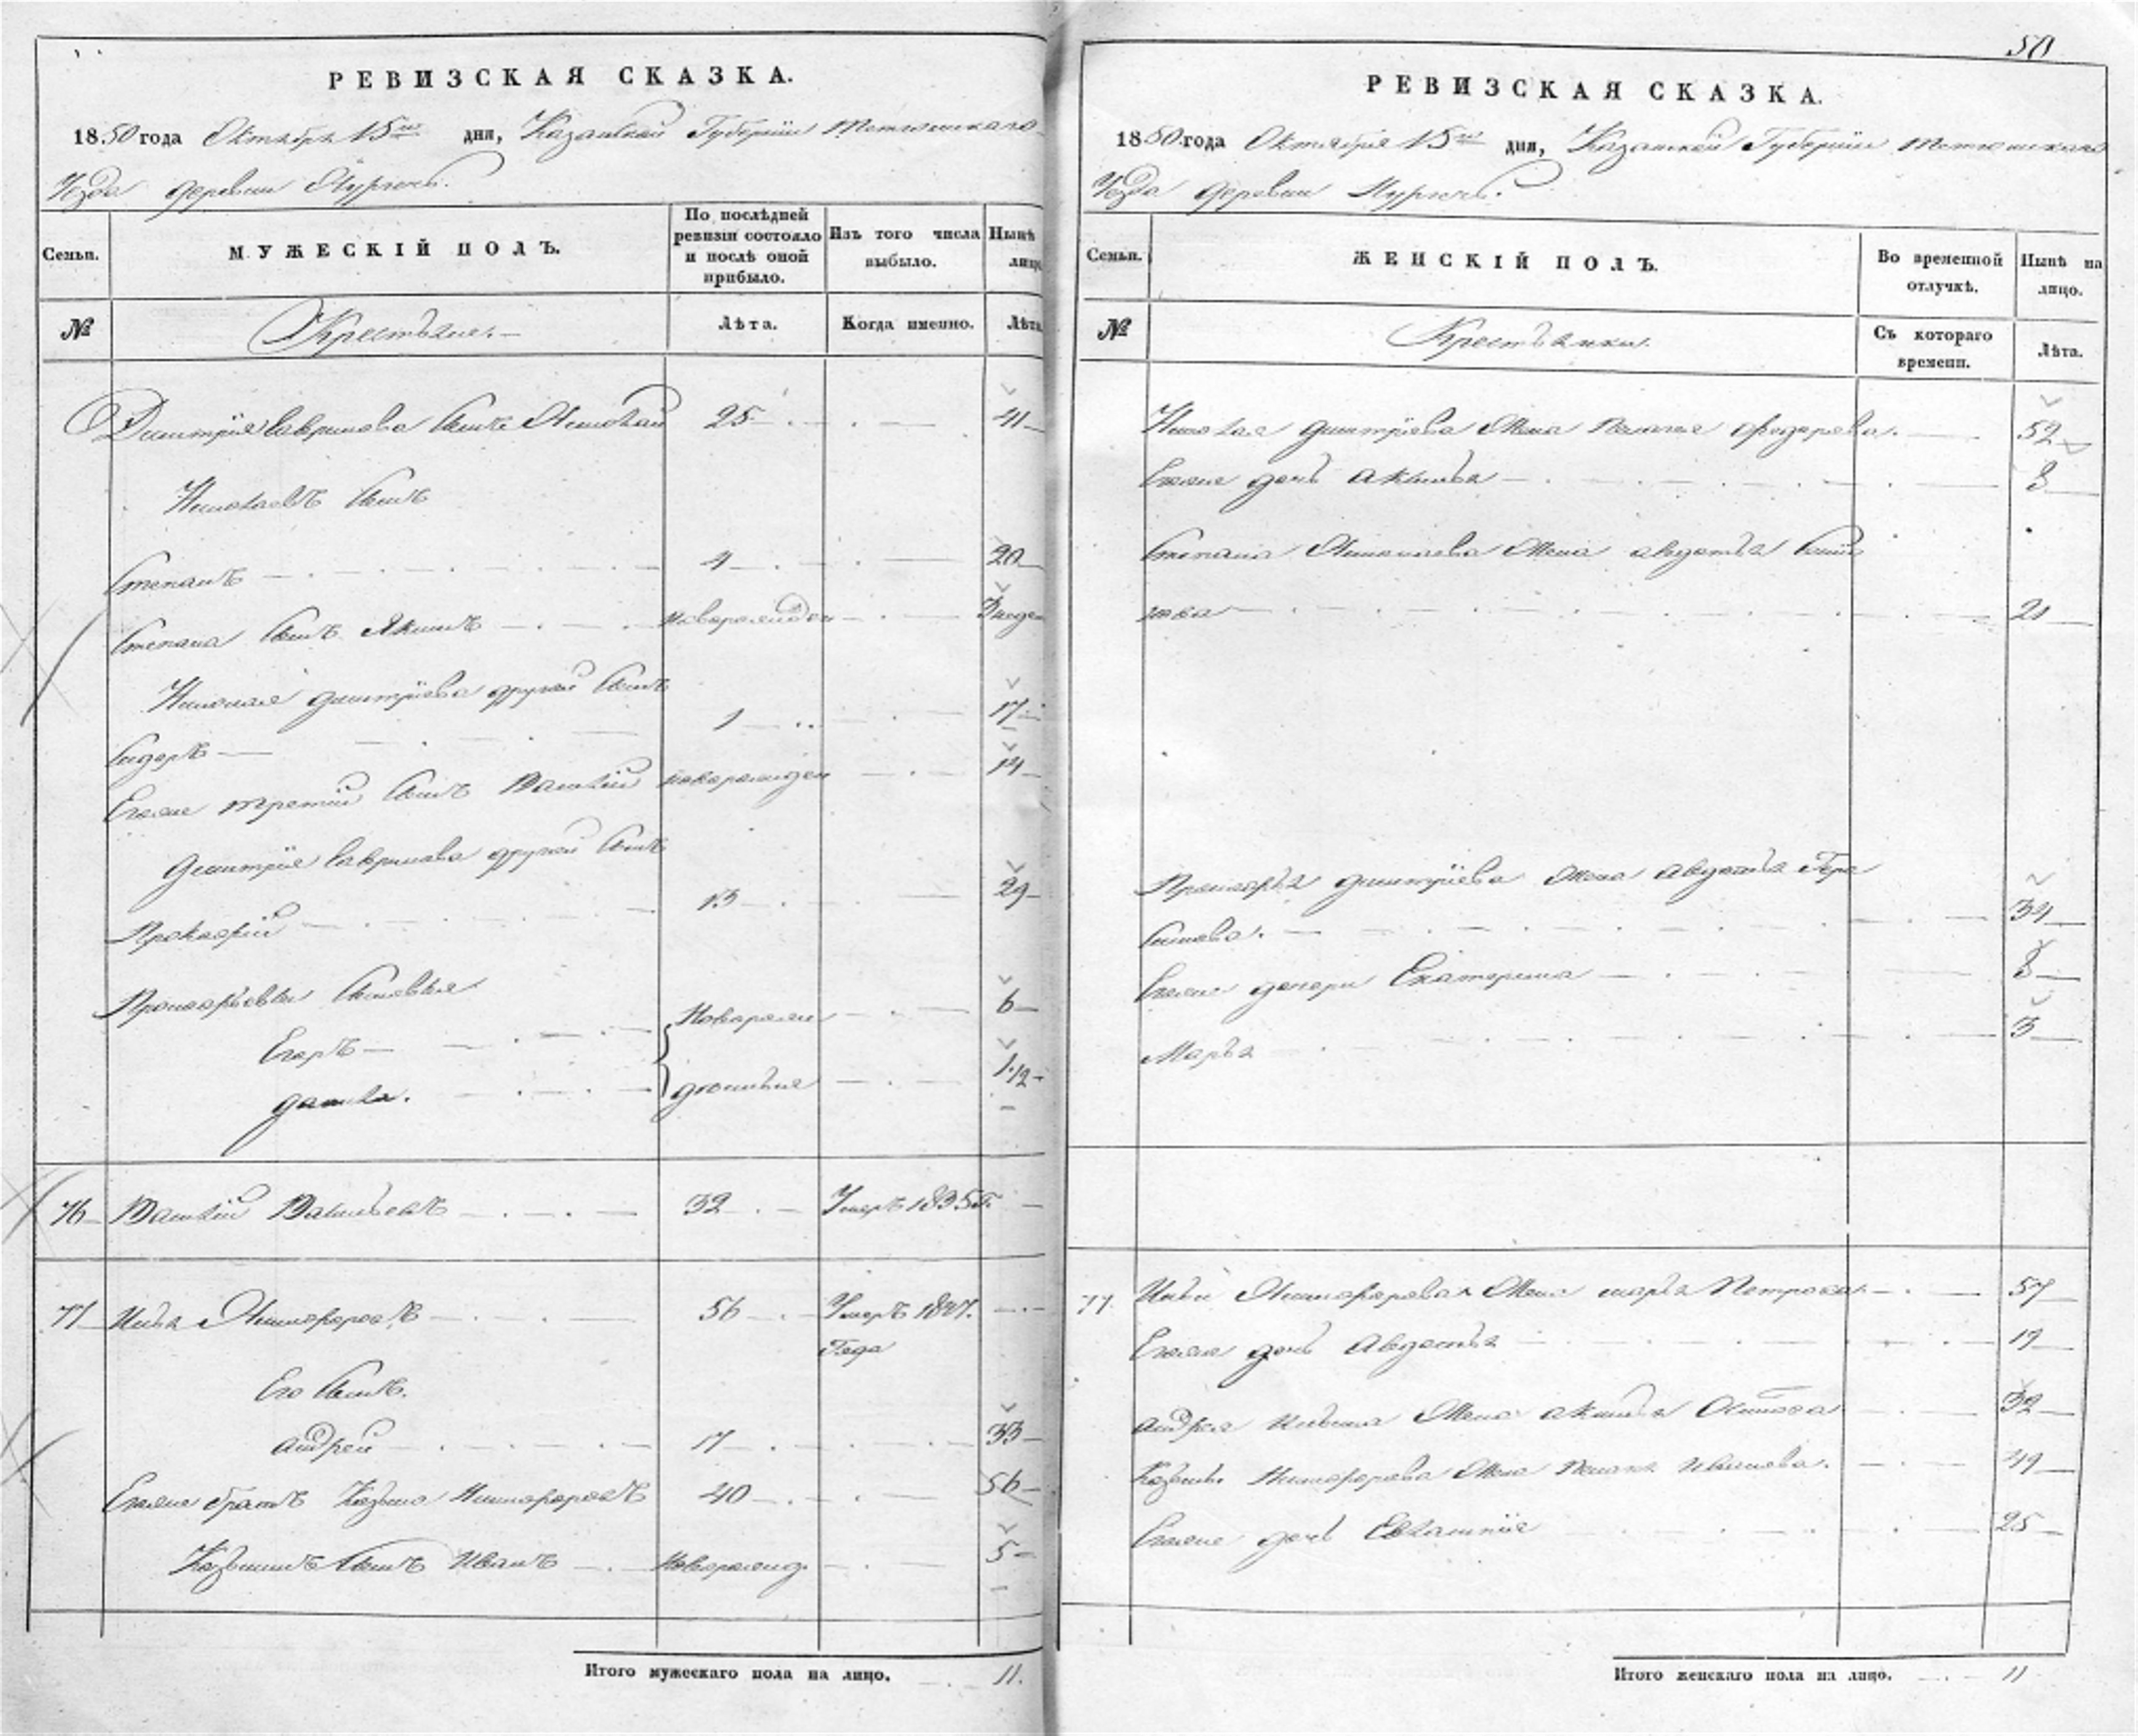 РЕВИЗСКАЯ СКАЗКА.
1850 года Октября 15го дня, Казанской Губернiи Тетюшскаго
Уѣзда деревни
Семьи.
МУЖЕСКIЙ ПОЛЪ.
По послѣдней ревизiи состояло и послѣ оной прибыло.
Изъ того числа выбыло.
Нынѣ лицо
№
Крестьяне.
Лѣта.
Когда именно.
Лѣта
Дмитрiя Гаврилова сынъ Николай 25 41
Николаевъ сынъ
Степанъ 4 20
Степана сынъ Якимъ новорожден
Николая Дмитрiева другой сынъ
Сидоръ 1 17
Его же третiй сынъ Василiй новорожден 14
Дмитрiя Гаврилова другой сынъ
Прокофiй 13 29
Прокофьевы сыновья
Егоръ Новорож 6
денные 1/12
76 Василiй Васильевъ 32 Умеръ 1835 г.
77 Илья Никифоровъ 56 Умеръ 1847.
Года
Его сынъ.
Андрей 17 33
Его же братъ Козьма Никифоровъ 40 56
Козьминъ сынъ Иванъ Новорожд. 5
Итого мужескаго пола на лицо. 11.
50
РЕВИЗСКАЯ СКАЗКА.
1850 года Октября 15го дня, Казанской Губернiи Тетюшскаго
Уѣзда деревни
Семьи.
ЖЕНСКIЙ ПОЛЪ.
Во временной отлучкѣ.
Нынѣ на лицо.
№
Крестьянки.
Съ котораго времени.
Лѣта.
Николая Дмитрiева жена Пелагея Федорова. 52
Его же дочь Акулина 8
Степана Николаева жена Авдотья
21
Прокофья Дмитрiева жена Авдотья Гера
симова. 34
Его же дочери Екатерина 8
Марья 3
77. Ильи Никифорова жена Марья Петрова 57
Его же дочь Авдотья 19
Андрея Ильина жена Акулина Осипова 32
Козьмы Никифорова жена Пелагея Иванова. 49
Его же дочь 25
Итого женскаго пола на лицо. 11